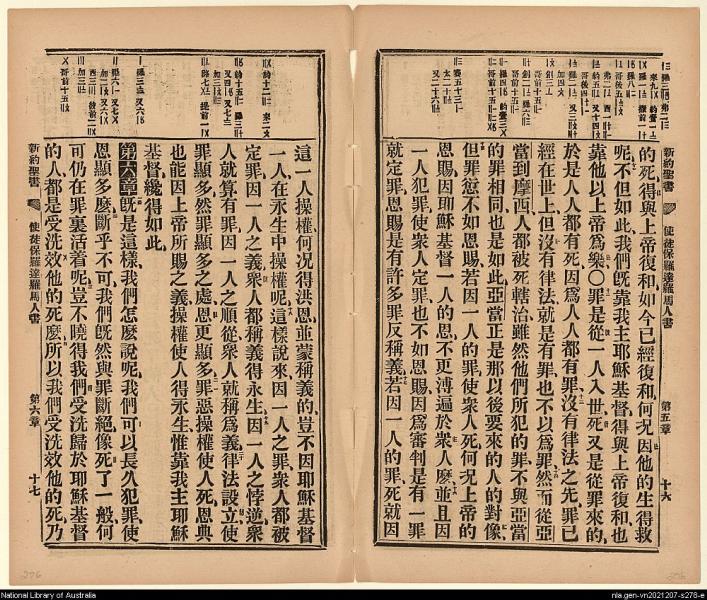 新約聖書 使徒保羅達羅馬人書 第五章 十六
的死得與上帝復和如今已經復和何况因他的生得救
呢不但如此我們旣靠我主耶穌基督得與上帝復和也
靠他以上帝爲樂〇罪是從一人入世死又是從罪來的
於是人人都有死因爲人人都有罪沒有律法之先罪已
經在世上但沒有律法就是有罪也不以爲罪然而從亞
當到摩西人都被死轄治雖然他們所犯的罪不與亞當
的罪相同也是如此亞當正是那以後要來的人的對像
但罪愆不如恩賜若因一人的罪使衆人死何况上帝的
恩賜因耶穌基督一人的恩不更溥遍於衆人麽並且因
一人犯罪使衆人定罪也不如恩賜因爲審判是有一罪
就定罪恩賜是有許多罪反稱義若因一人的罪死就因
這一人操權何况得洪恩並蒙稱義的豈不因耶穌基督
一人在永生中操權呢這樣說來因一人之罪衆人都被
定罪因一人之義衆人都稱義得永生因一人之悖逆衆
人就算有罪因一人之順從衆人就稱爲義律法設立使
罪顯多然罪顯多之處恩更顯多罪惡操權使人死恩典
也能因上帝所賜之義操權使人得永生惟靠我主耶穌
基督纔得如此
第六章旣是這樣我們怎麽說呢我們可以長久犯罪使
恩顯多麽斷乎不可我們旣然與罪斷絕像死了一般何
可仍在罪裏活着呢豈不曉得我們受洗歸於耶穌基督
的人都是受洗效他的死麽所以我們受洗效他的死乃
新約聖書 使徒保羅達羅馬人書 第六章 十七
276
National Library of Australia
nla.gen-vn2021207-s276-e